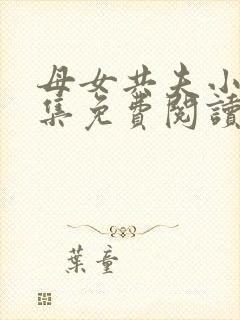 母女共夫小
集免費閱讀
葉童